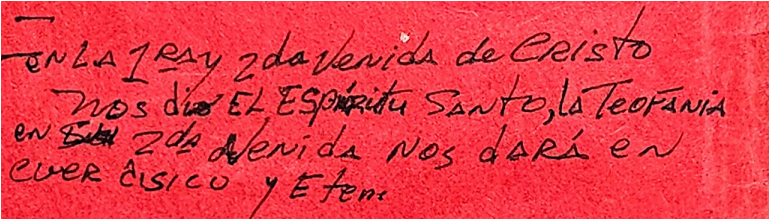 en LA 1RA y 2da Venida de CRISTO
nos dio EL ESPíRitu SANTO, la TEOFANIA
en 2da Venida NOS DARÁ en
y